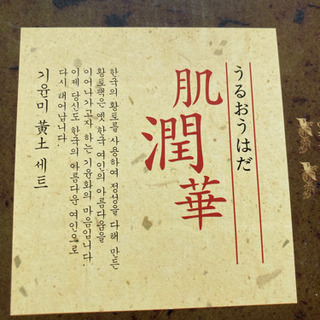 うるおうはだ
肌潤華
한국의 황토를 사용하여 정성을 다해 만든
황토팩은 옛 한국 여인의 아름다움을
이어나가고자 하는 기윤화의 마음입니다.
이제 당신도 한국의 아름다운 여인으로
다시 태어납니다.
기윤미 黃土 세트